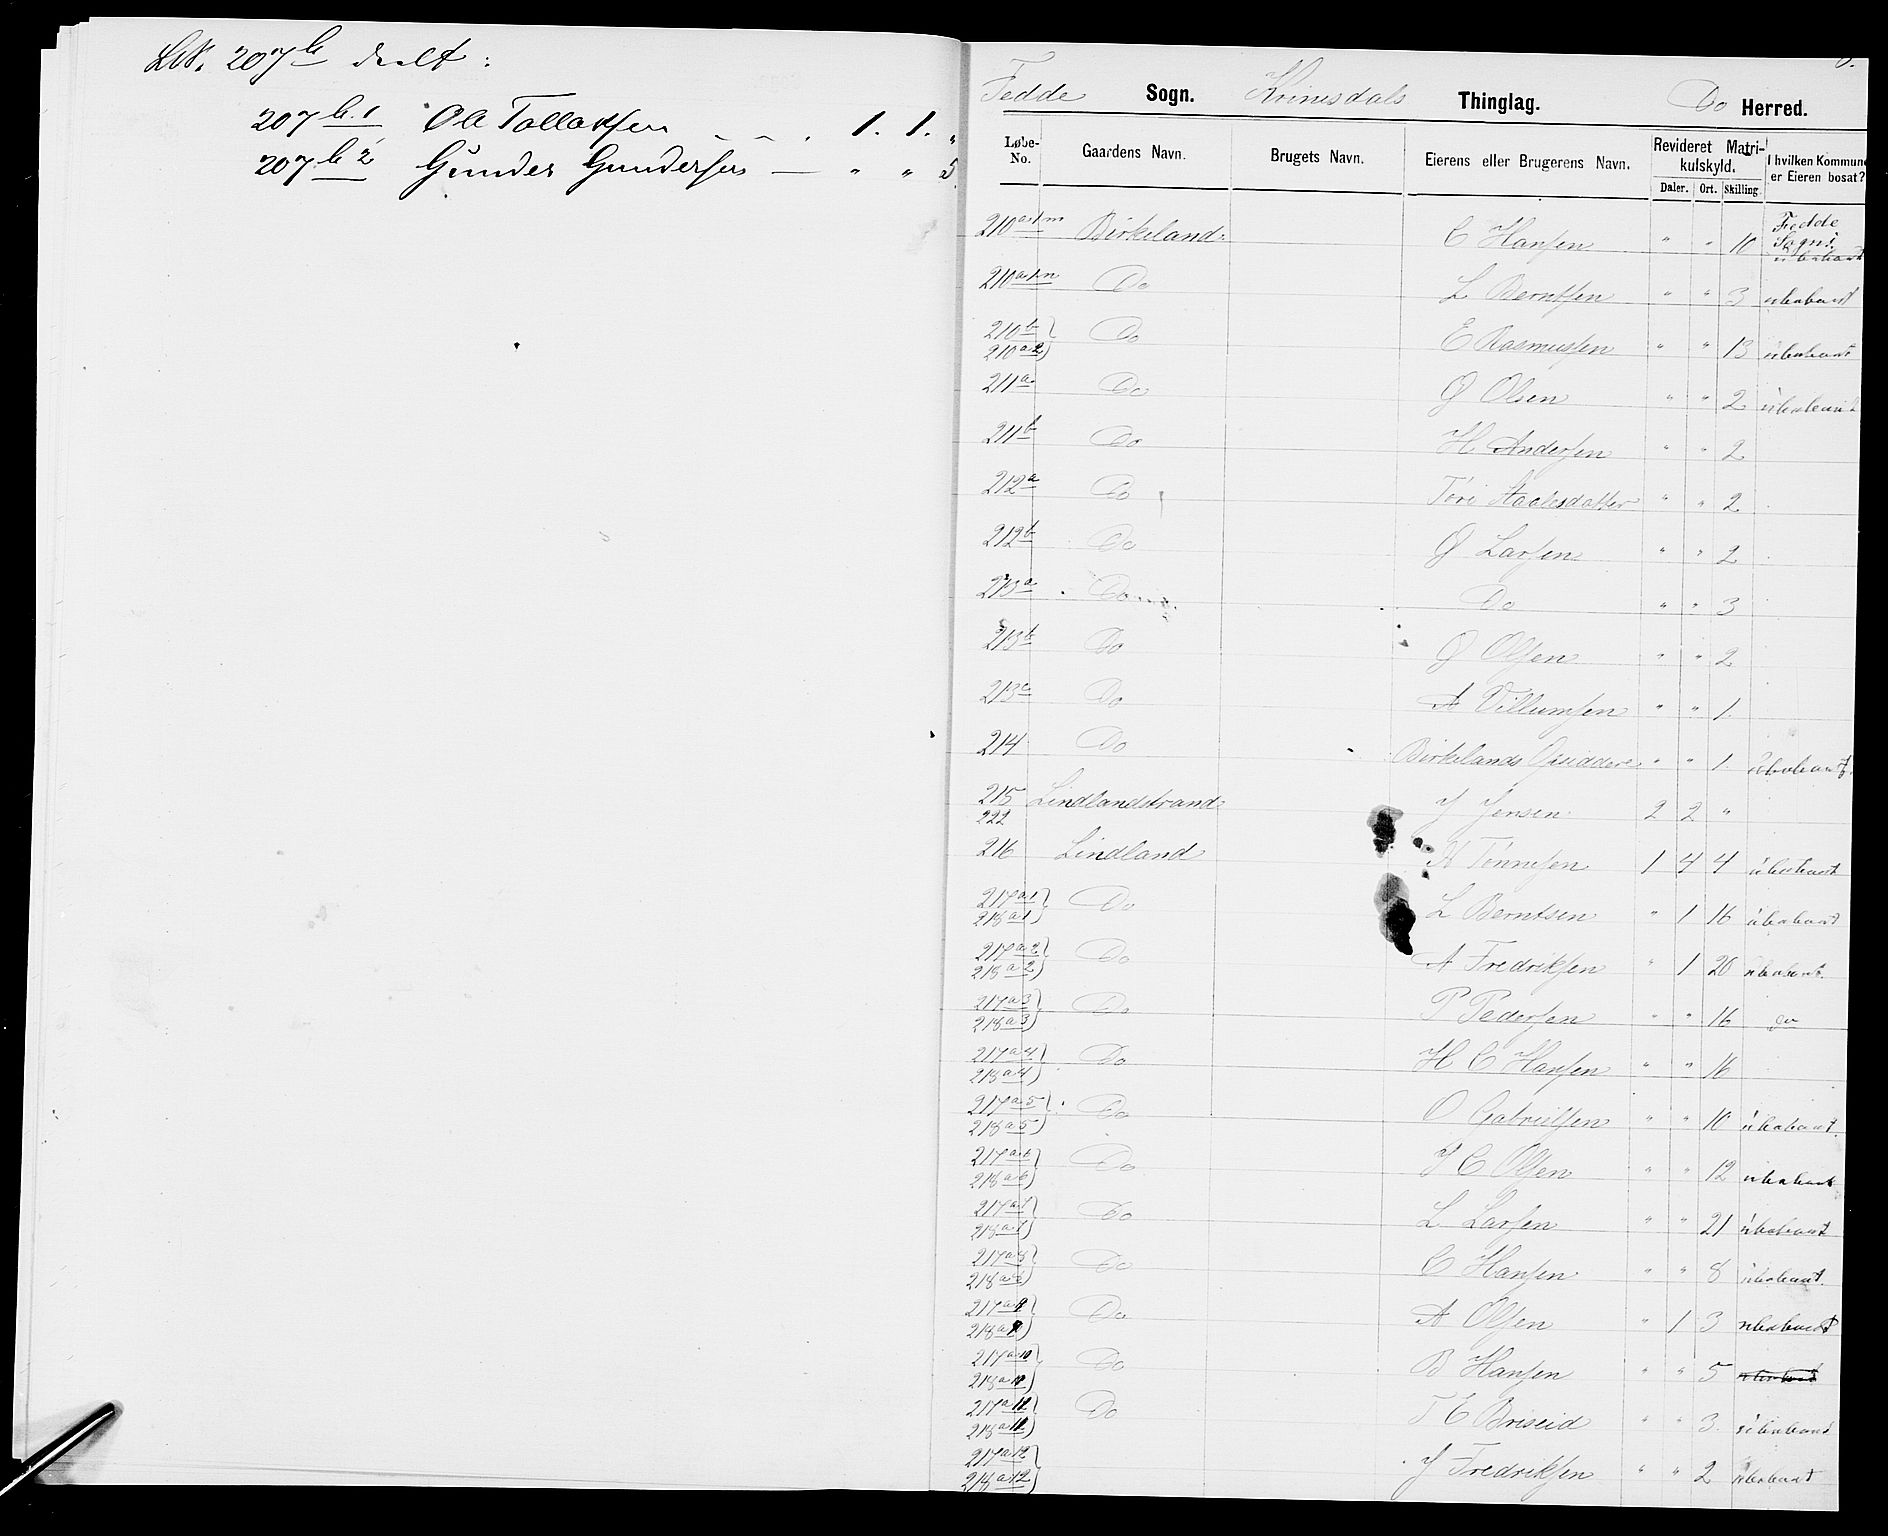 LN. 207 b deelt :
207 b.1 Ole Tollaksen - - . 1. 1. "
207 b 2 Gunder Gundersen — " " 5.
Fedde Sogn. Kvinesdals Thinglag. Do Herred.
Løbe-No. Gaardens Navn. Brugets Navn. Eierens eller Brugerens Navn. Revideret Matrikulskyld. Daler. Ort. Skilling. I hvilken Kommune er Eieren bosat?
210 a.1.m Birkeland. C Hansen " " 10 Fedde Sogn. ubebaet
210 a.1.n Do L Berntsen " " 3 ubebaet
210 b 210 a.2 Do E Rasmussen " " 13 ubebaet
211 a Do G Olsen " " 2 ubebaet
211 b Do H Andersen " " 2
212 a Do Tori Aadesdatter " " 2
212 b Do G Larsen " " 2
213 a Do Do " " 3
213 b Do G Olsen " " 2
213 c Do A Villumsen " " 1.
214 Do Birkelands Opsiddere " " 1. ubebaet
215 222 Lindlandstrand J Jensen 2 2 "
216 Lindland A Tønnesen 1 4 4 ubebaet
217 a 1 218 a 1 Do L Berntsen " 1 16 ubebaet
217 a 2 218 a 2 Do A Fredriksen " 1 20 ubebaet.
217 a 3 218 a 3 Do P Pedersen " " 16 do
217 a 4 218 a 4 Do H C Hansen " " 16
217 a 5 218 a 5 Do O Gabrielsen " " 10 ubebaet.
217 a 6 218 a 6 Do J C Olsen " " 12 ubebaet
217 a 7 218 a 7 Do L Larsen " " 21 ubebaet
217 a 8 218 a 8 Do C Hansen " " 8 ubebaet.
217 a 9 218 a 9 Do A Olsen " 1 3 ubebaet
217 a 10 218 a 10 Do B Hansen " " 5 ubebaet
217 a 11 218 a 11 Do T E Briseid " " 3. ubebaet
217 a 12 218 a 12 J Fredriksen " " 2 ubebaet